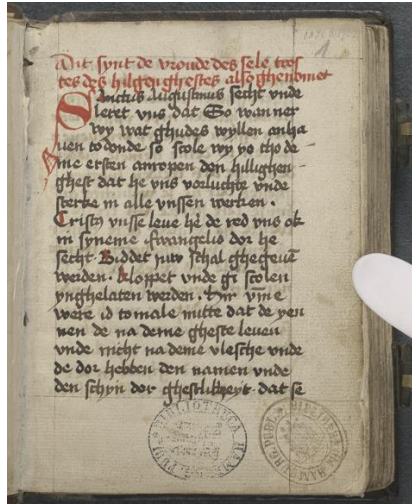 Dit synt de vroude des sele troſ
tes des hilgen gheſtes alſo ghenomet
Sanctus Auguſtinus ſecht vnde
leret vns dat So wanner
wy wat ghudes wyllen anha
uen to donde ſo ſcole wy yo tho de
me erſten anropen den hillighen
gheſt dat he vns vorluchte vnde
ſterke in alle vnſſen werken ·
Criſtꝰ vnſſe leue he̅ de red vns ok
in ſyneme ewangelio dor he
ſecht Biddet juw ſchal ghegeue̅
werden · kloppet vnde gi ſcolen
ynghelaten werden · Hir vm̅e
were id to male nutte dat de yen
nen de na deme gheſte leuen
vnde nicht na deme vleſche vnde
de dor hebben den namen vnde
den ſchyn der gheſtlikheyt · dat ſe
1
BIBLIOTHECA
HAMBURG. PUBL. BIBLIOTH.